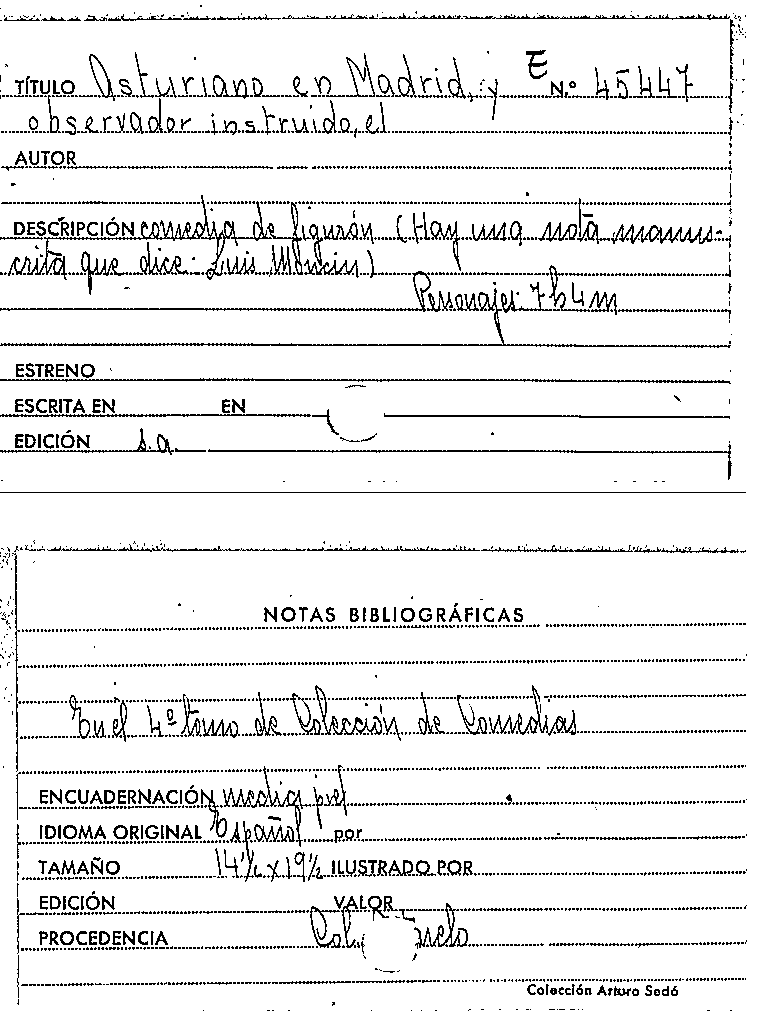 TÍTULO Asturiano en Madrid, y E N.º 45447
observador instruido, el
AUTOR
DESCRIPCIÓN comedia de figurón (Hay una nota manus-
crita que dice: Luis Monkin)
Personajes: 7h 4m
ESTRENO
ESCRITA EN EN
EDICIÓN s.a.
NOTAS BIBLIOGRÁFICAS
En el 4º tomo de Colección de Comedias
ENCUADERNACIÓN media piel
IDIOMA ORIGINAL Español por
TAMAÑO 14½ x 19½ ILUSTRADO POR
EDICIÓN VALOR
PROCEDENCIA Col.
Colección Arturo Sedó